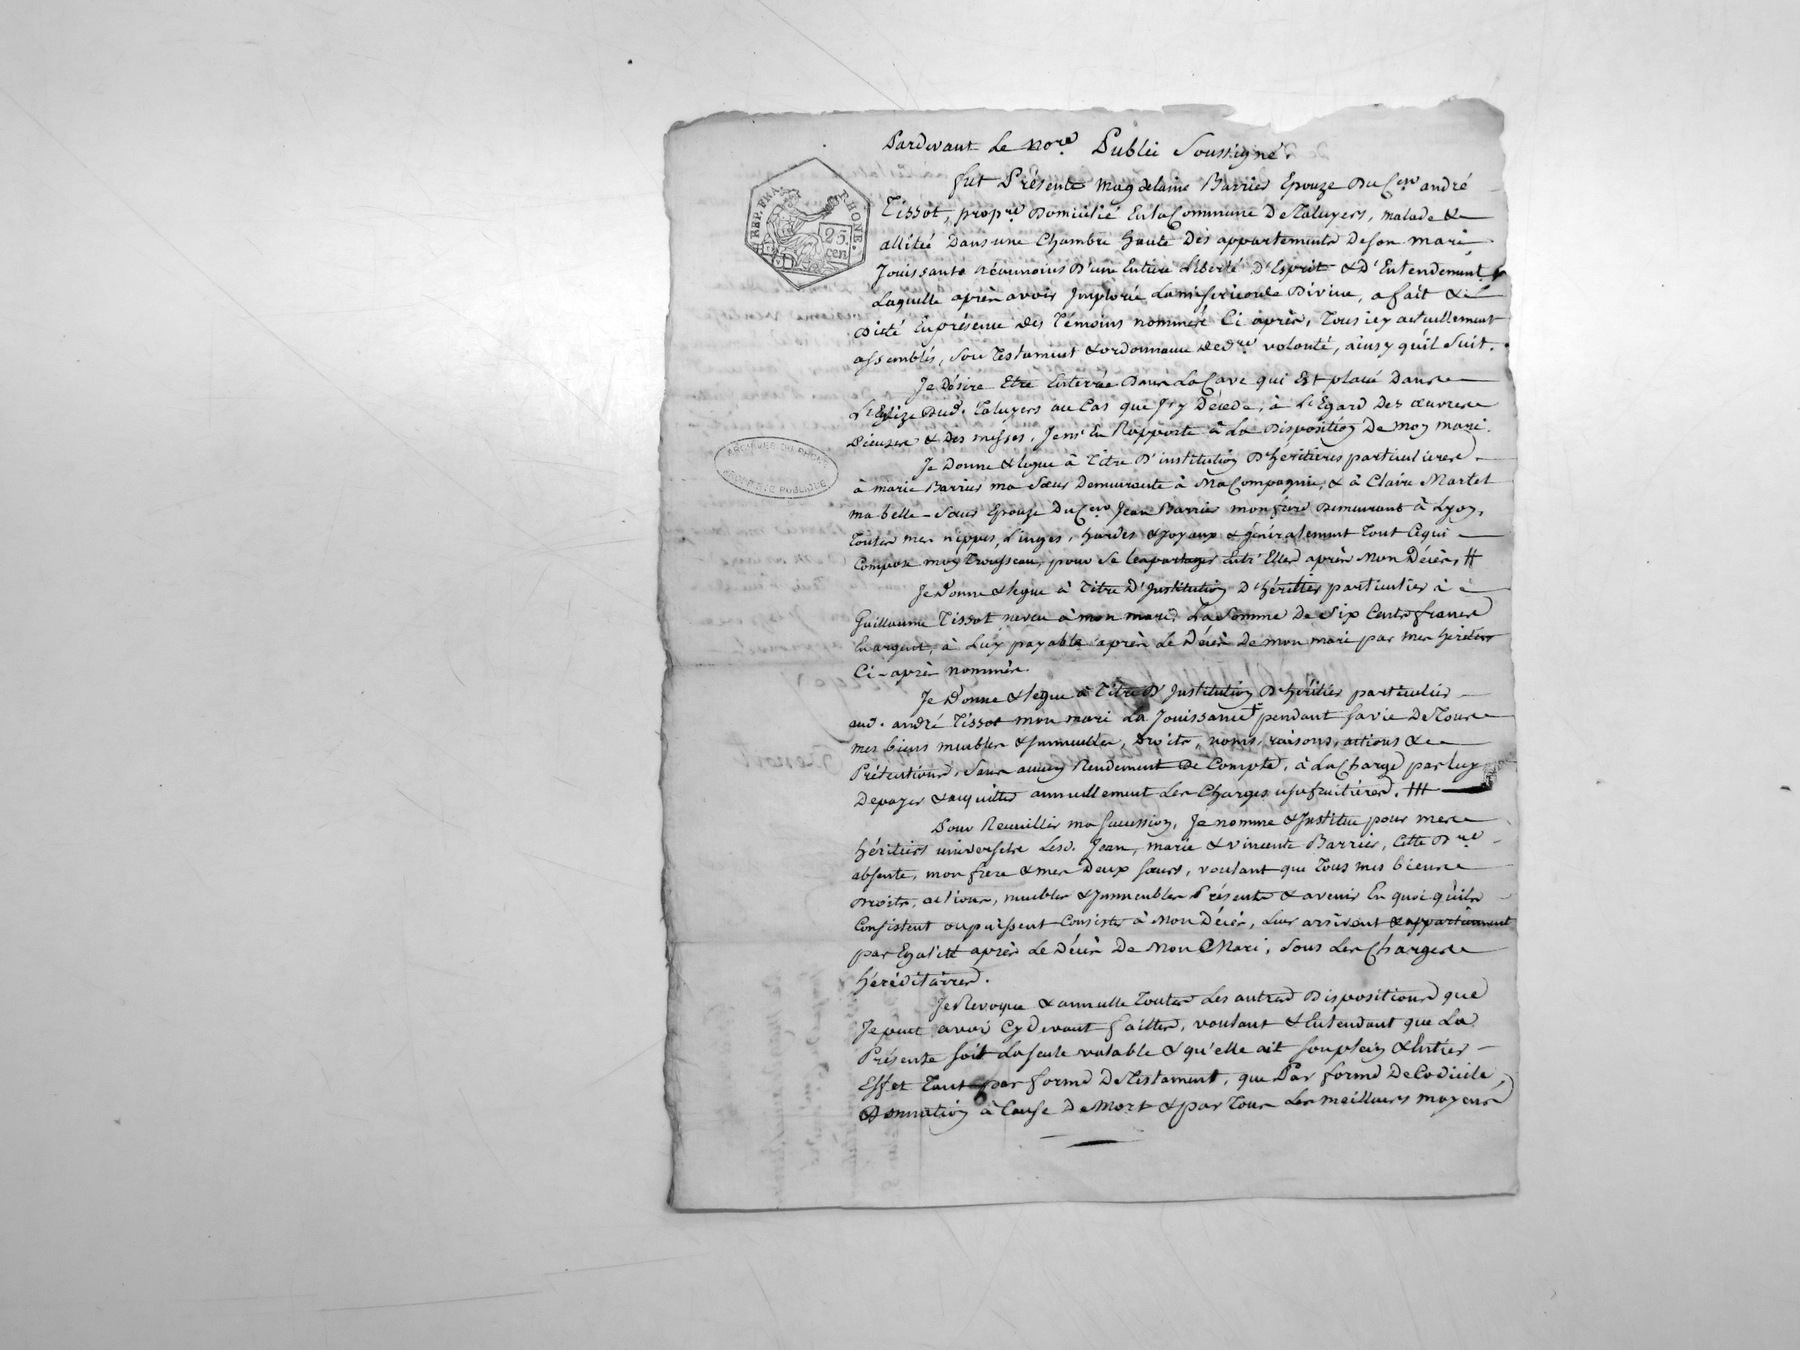 Pardevant Le no.re Public Soussigné.
fut Présente Magdelaine Barrier Epouze Du C.en andré
Tissot, prop.re Domicilié En la Commune De Taluyers, malade &
allitée Dans une Chambre haute Des appartements De son mari
Jouissante néanmoins D'une Entiere Liberté D'Esprit & D'Entendement
Laquelle après avoir Imploré La misericorde Divine, a fait &
dicté En présence des Témoins nommés Ci après, Tous icy actuellement
assemblés, son Testament & ordonnance de d.re volonté, ainsy qu'il Suit.
Je Désire Etre Enterrée Dans La Cave qui Est placé Dans
L'Eglize Dud. Taluyers au Cas que J'ry Décede, à L'Egard Des œuvres
Pieuses & Des messes, Je m'En Rapporte à La Disposition De mon mari.
Je Donne & legue à Titre D'institution D'héritieres particulieres
à marie Barrier ma Sœur Demeurante à Ma Compagnie, & à Claire Martel
ma belle-Sœur Epouze Du C.en Jean Barrier mon frere Demeurant à Lyon,
Toutes mes nippes, Linges, hardes & Joyaux & généralement Tout Cequi
Compose mon Trousseau, pour Se Les partager Entr'Elles après Mon Décès, #
Je Donne & legue à Titre D'Institution D'héritier particulier à
Guillaume Tissot neveu à mon mari, La Somme De Six Cents francs
En argent, à Luy payable après Le Décès De mon mari par mes héritiers
Ci-après nommés.
Je Donne & legue à Titre D'Institution D'héritier particulier
aud. andré Tissot mon mari La Jouissance pendant sa vie De Tous
mes biens meubles & Immeubles, Droits, noms, raisons, actions &
Prétentions, Sans aucun Rendement De Compte, à La Charge par Luy
De payer & acquitter annuellement Les Charges usufruitieres. ###
Pour Recueillir ma Succession, Je nomme & Institue pour mes
héritiers universels Lesd. Jean, marie & vincente Barrier, Cette D.re
absente, mon frere & mes Deux Sœurs, voulant que Tous mes biens
Droits, actions, meubles & Immeubles Présents & avenir En quoi qu'ils
Consistent ou puissent Consister à Mon Décès, Leur arrivent & appartiennent
par Egalité après Le Décès De Mon Mari, Sous Les Charges
héréditaires.
Je Revoque & annulle Toutes Les autres Dispositions que
Je puis avoir Cy Devant faittes, voulant & Entendant que La
Présente soit La seule valable & qu'elle ait son plein & Entier
Effet Tant par forme De Testament, que Par forme De Codicile,
Donnation à Cause De Mort & par Tous Les meilleurs moyens
REP. FRA.
RHONE.
25
cen
ARCHIVES DU RHÔNE
PROPRIÉTÉ PUBLIQUE